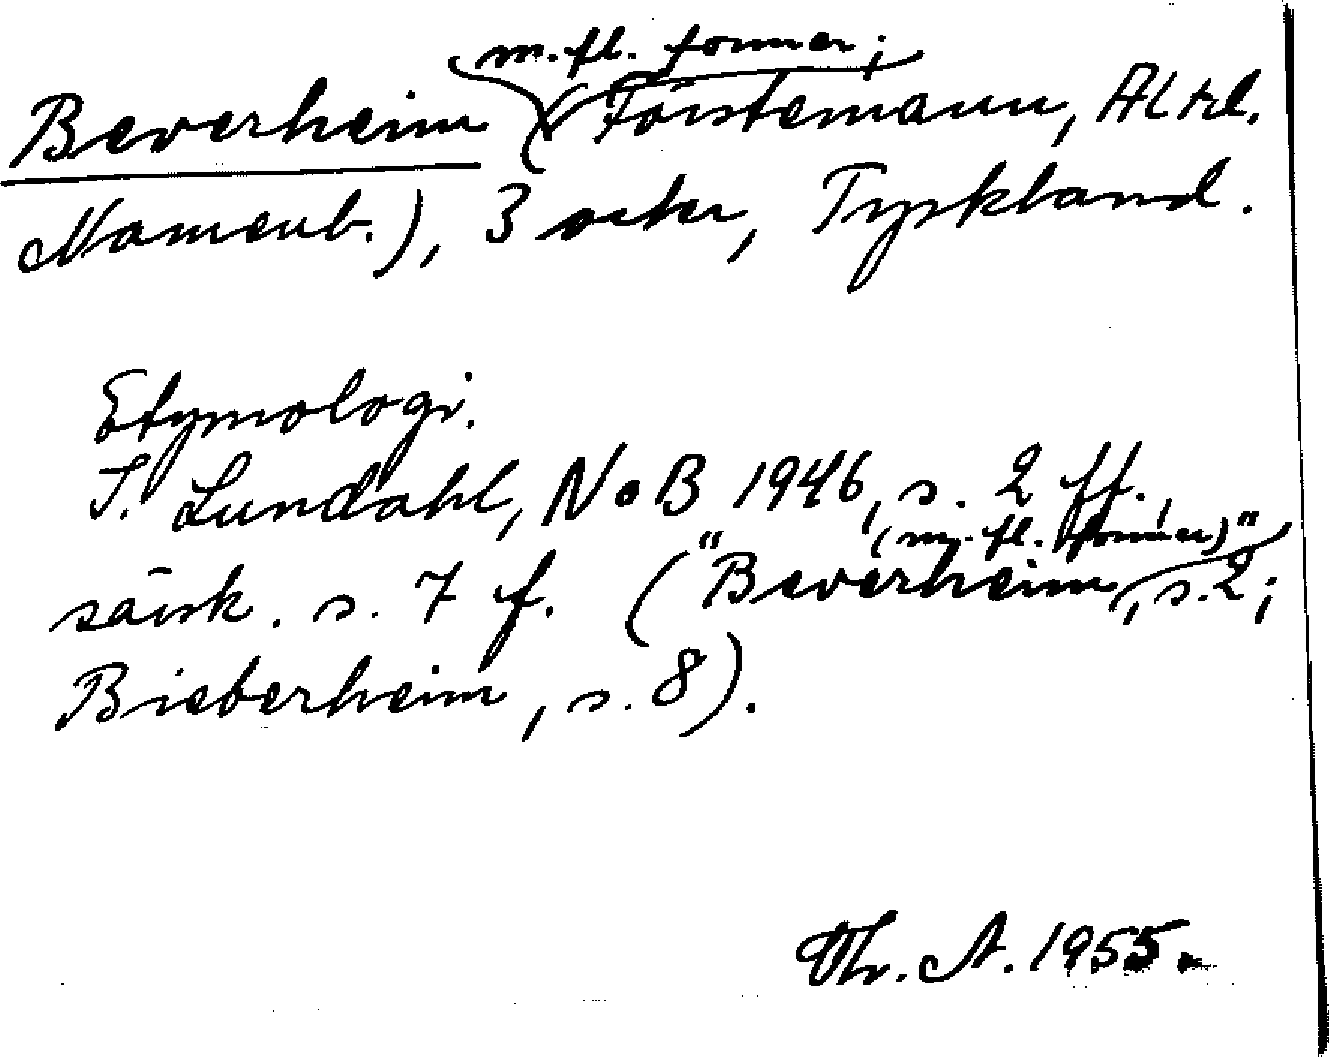 m. fl. former;
Beverheim (Förstemann, Altd.
Namenb.), 3 orter, Tyskland.
Etymologi.
I. Lundahl, NoB 1946, s. 2 ff.,
(m. fl. former)"
särsk. s. 7 f. ("Beverheim, s. 2;
Bieberheim, s. 8).
Th. A. 1955.